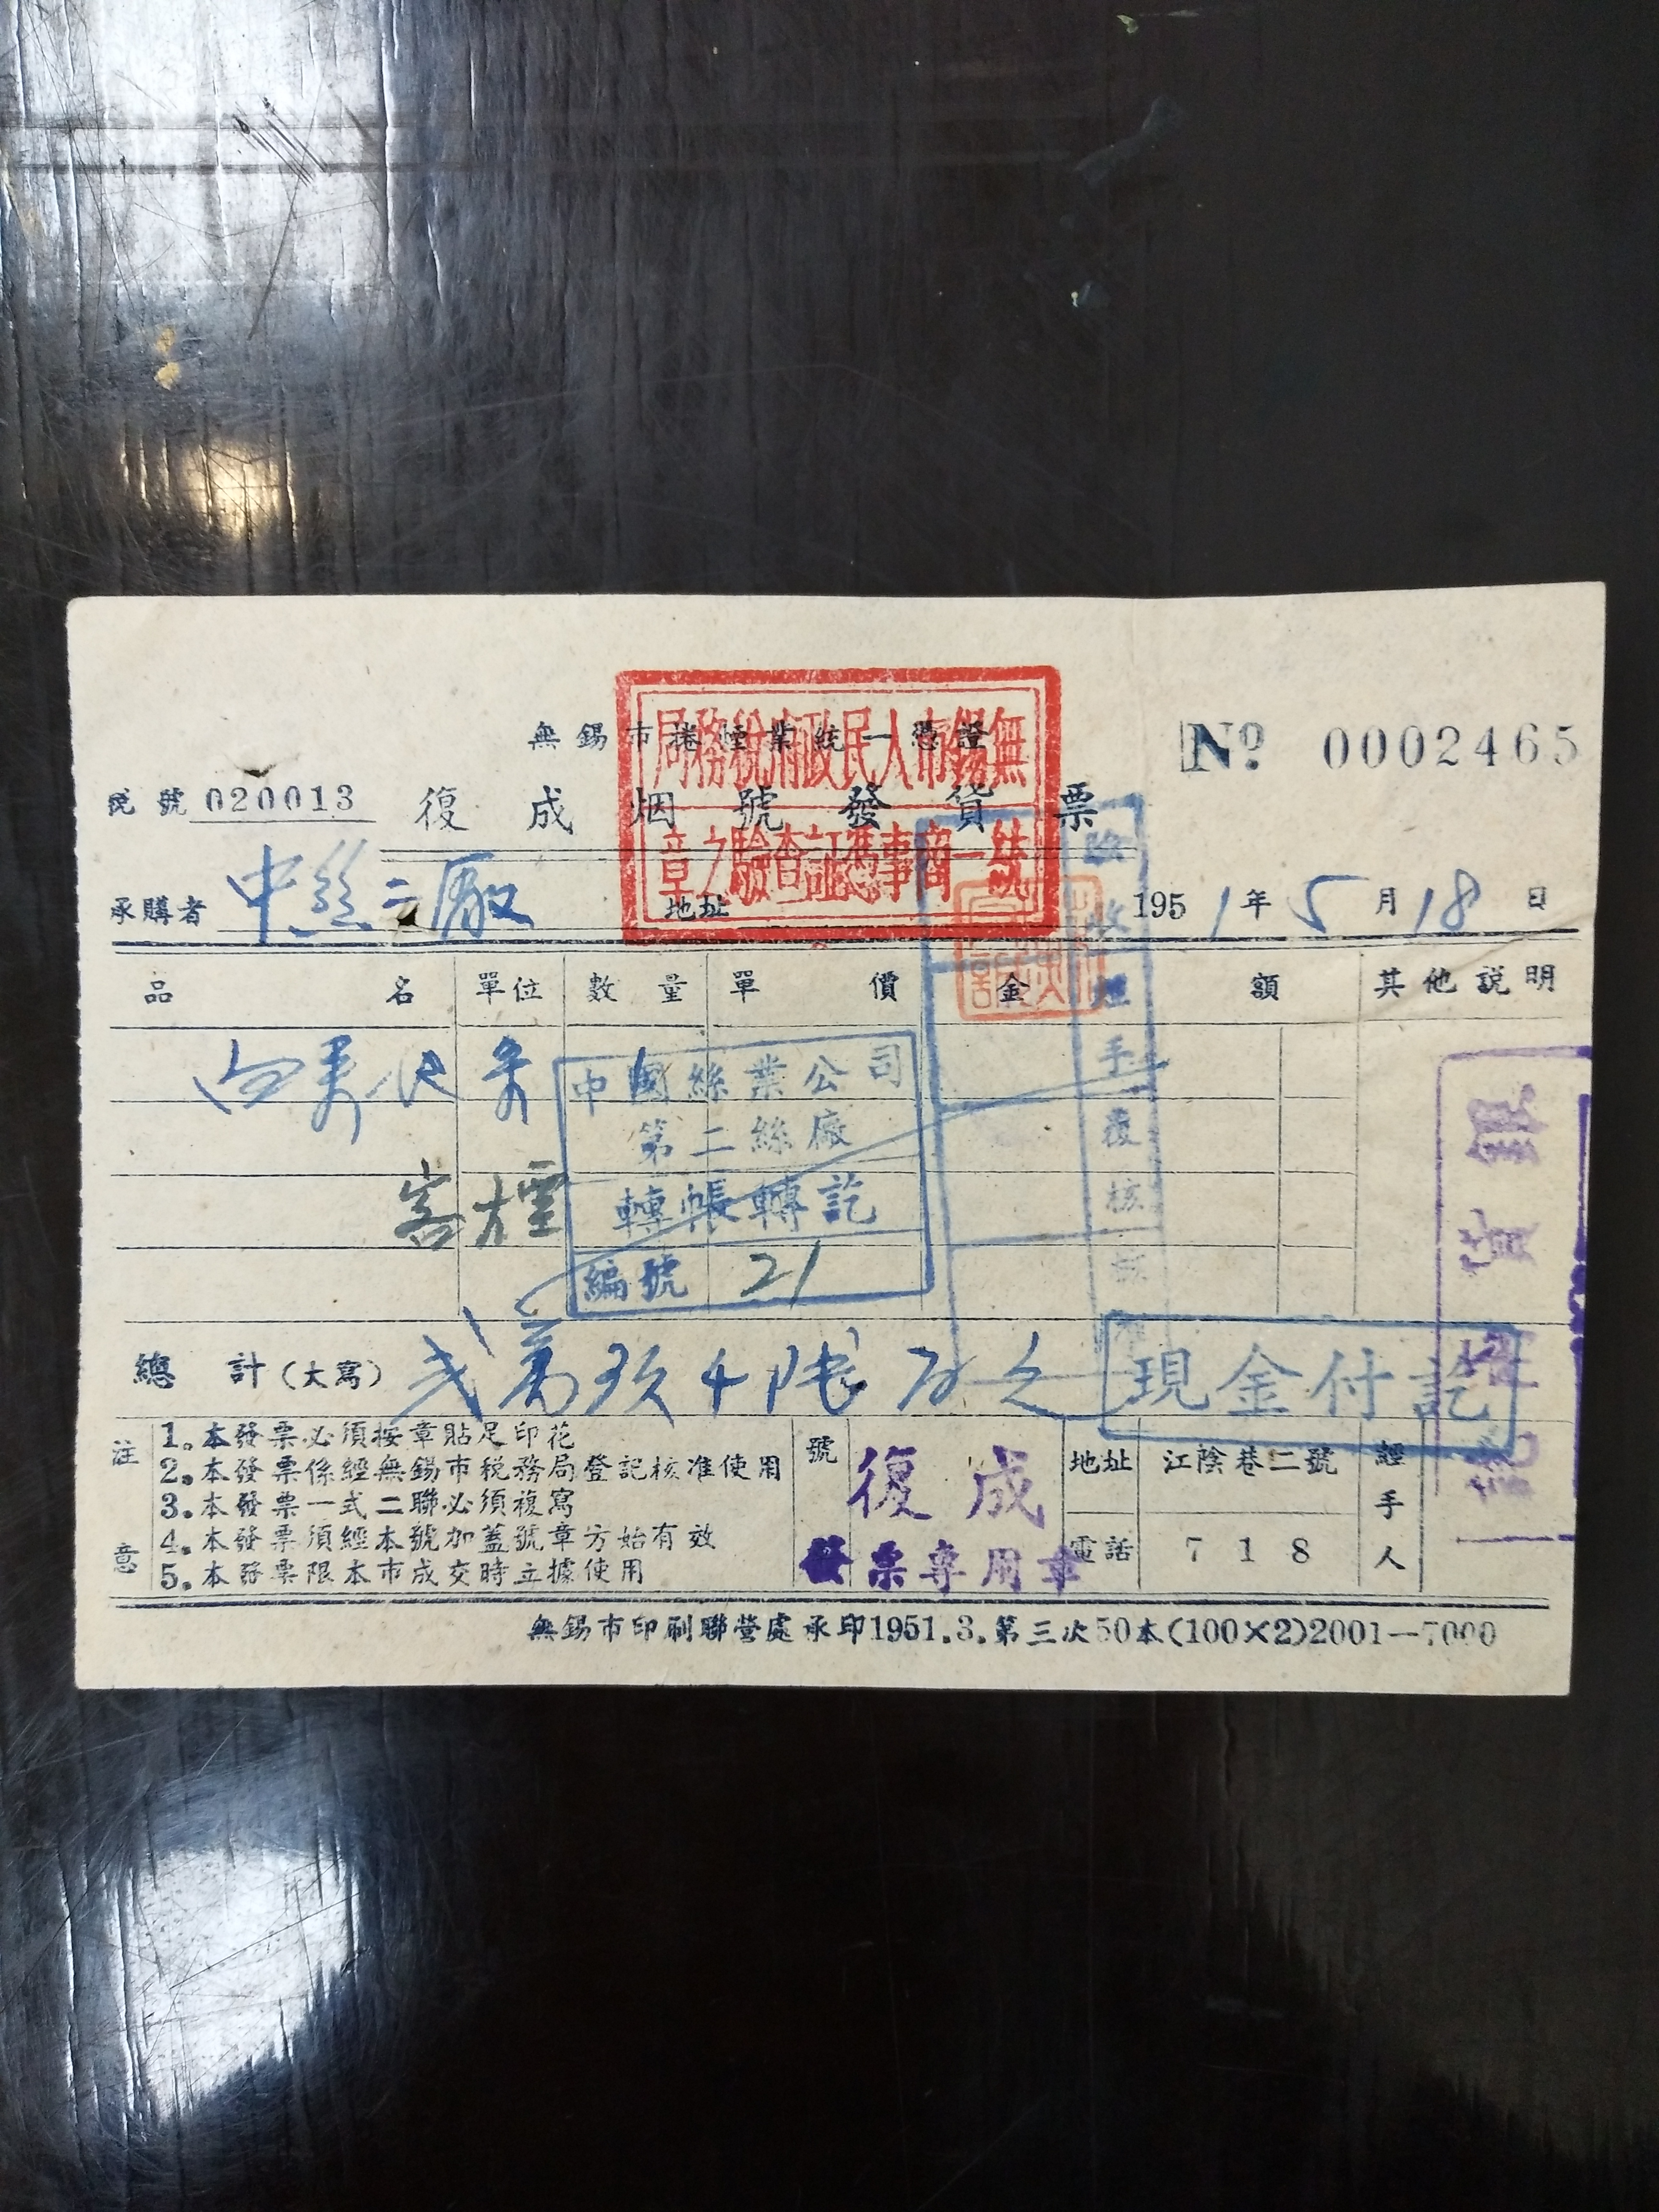 無錫市捲煙業統一憑證
№ 0002465
無錫市人民政府稅務局
統一商事憑証查驗之章
號 020013
復成烟號發貨票
承購者 中絲二廠 地址 1951年5月18日
品名 單位 數量 單價 金額 其他説明
條
中國絲業公司
第二絲廠
轉帳轉訖
編號 21
手
覆
核
總計(大寫) 弍萬玖仟陆百
現金付訖
注意
1.本發票必須按章貼足印花
2.本發票係經無錫市税務局登記核准使用
3.本發票一式二聯必須複寫
4.本發票須經本號加蓋號章方始有效
5.本發票限本市成交時立據使用
號
復成
發票專用章
地址 江陰巷二號
電話 718
經手人
無錫市印刷聯營處承印1951.3.第三次50本(100×2)2001—7000